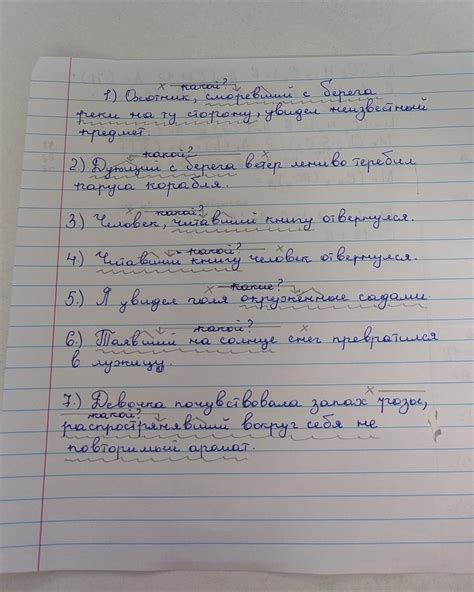 какой?
1) Охотник, сморевший с берега
реки на ту сторону, увидел неизвестный
предмет.
какой?
2) Дующий с берега ветер лениво теребил
паруса корабля.
какой?
3.) Человек, читавший книгу отвернулся.
какой?
4.) Читавший книгу человек отвернулся.
какие?
5.) Я увидел поля окружённые садами.
какой?
6.) Таявший на солнце снег превратился
в лужицу.
7.) Девочка почувствовала запах
какой?
распространявший вокруг себя не
повторимый аромат.